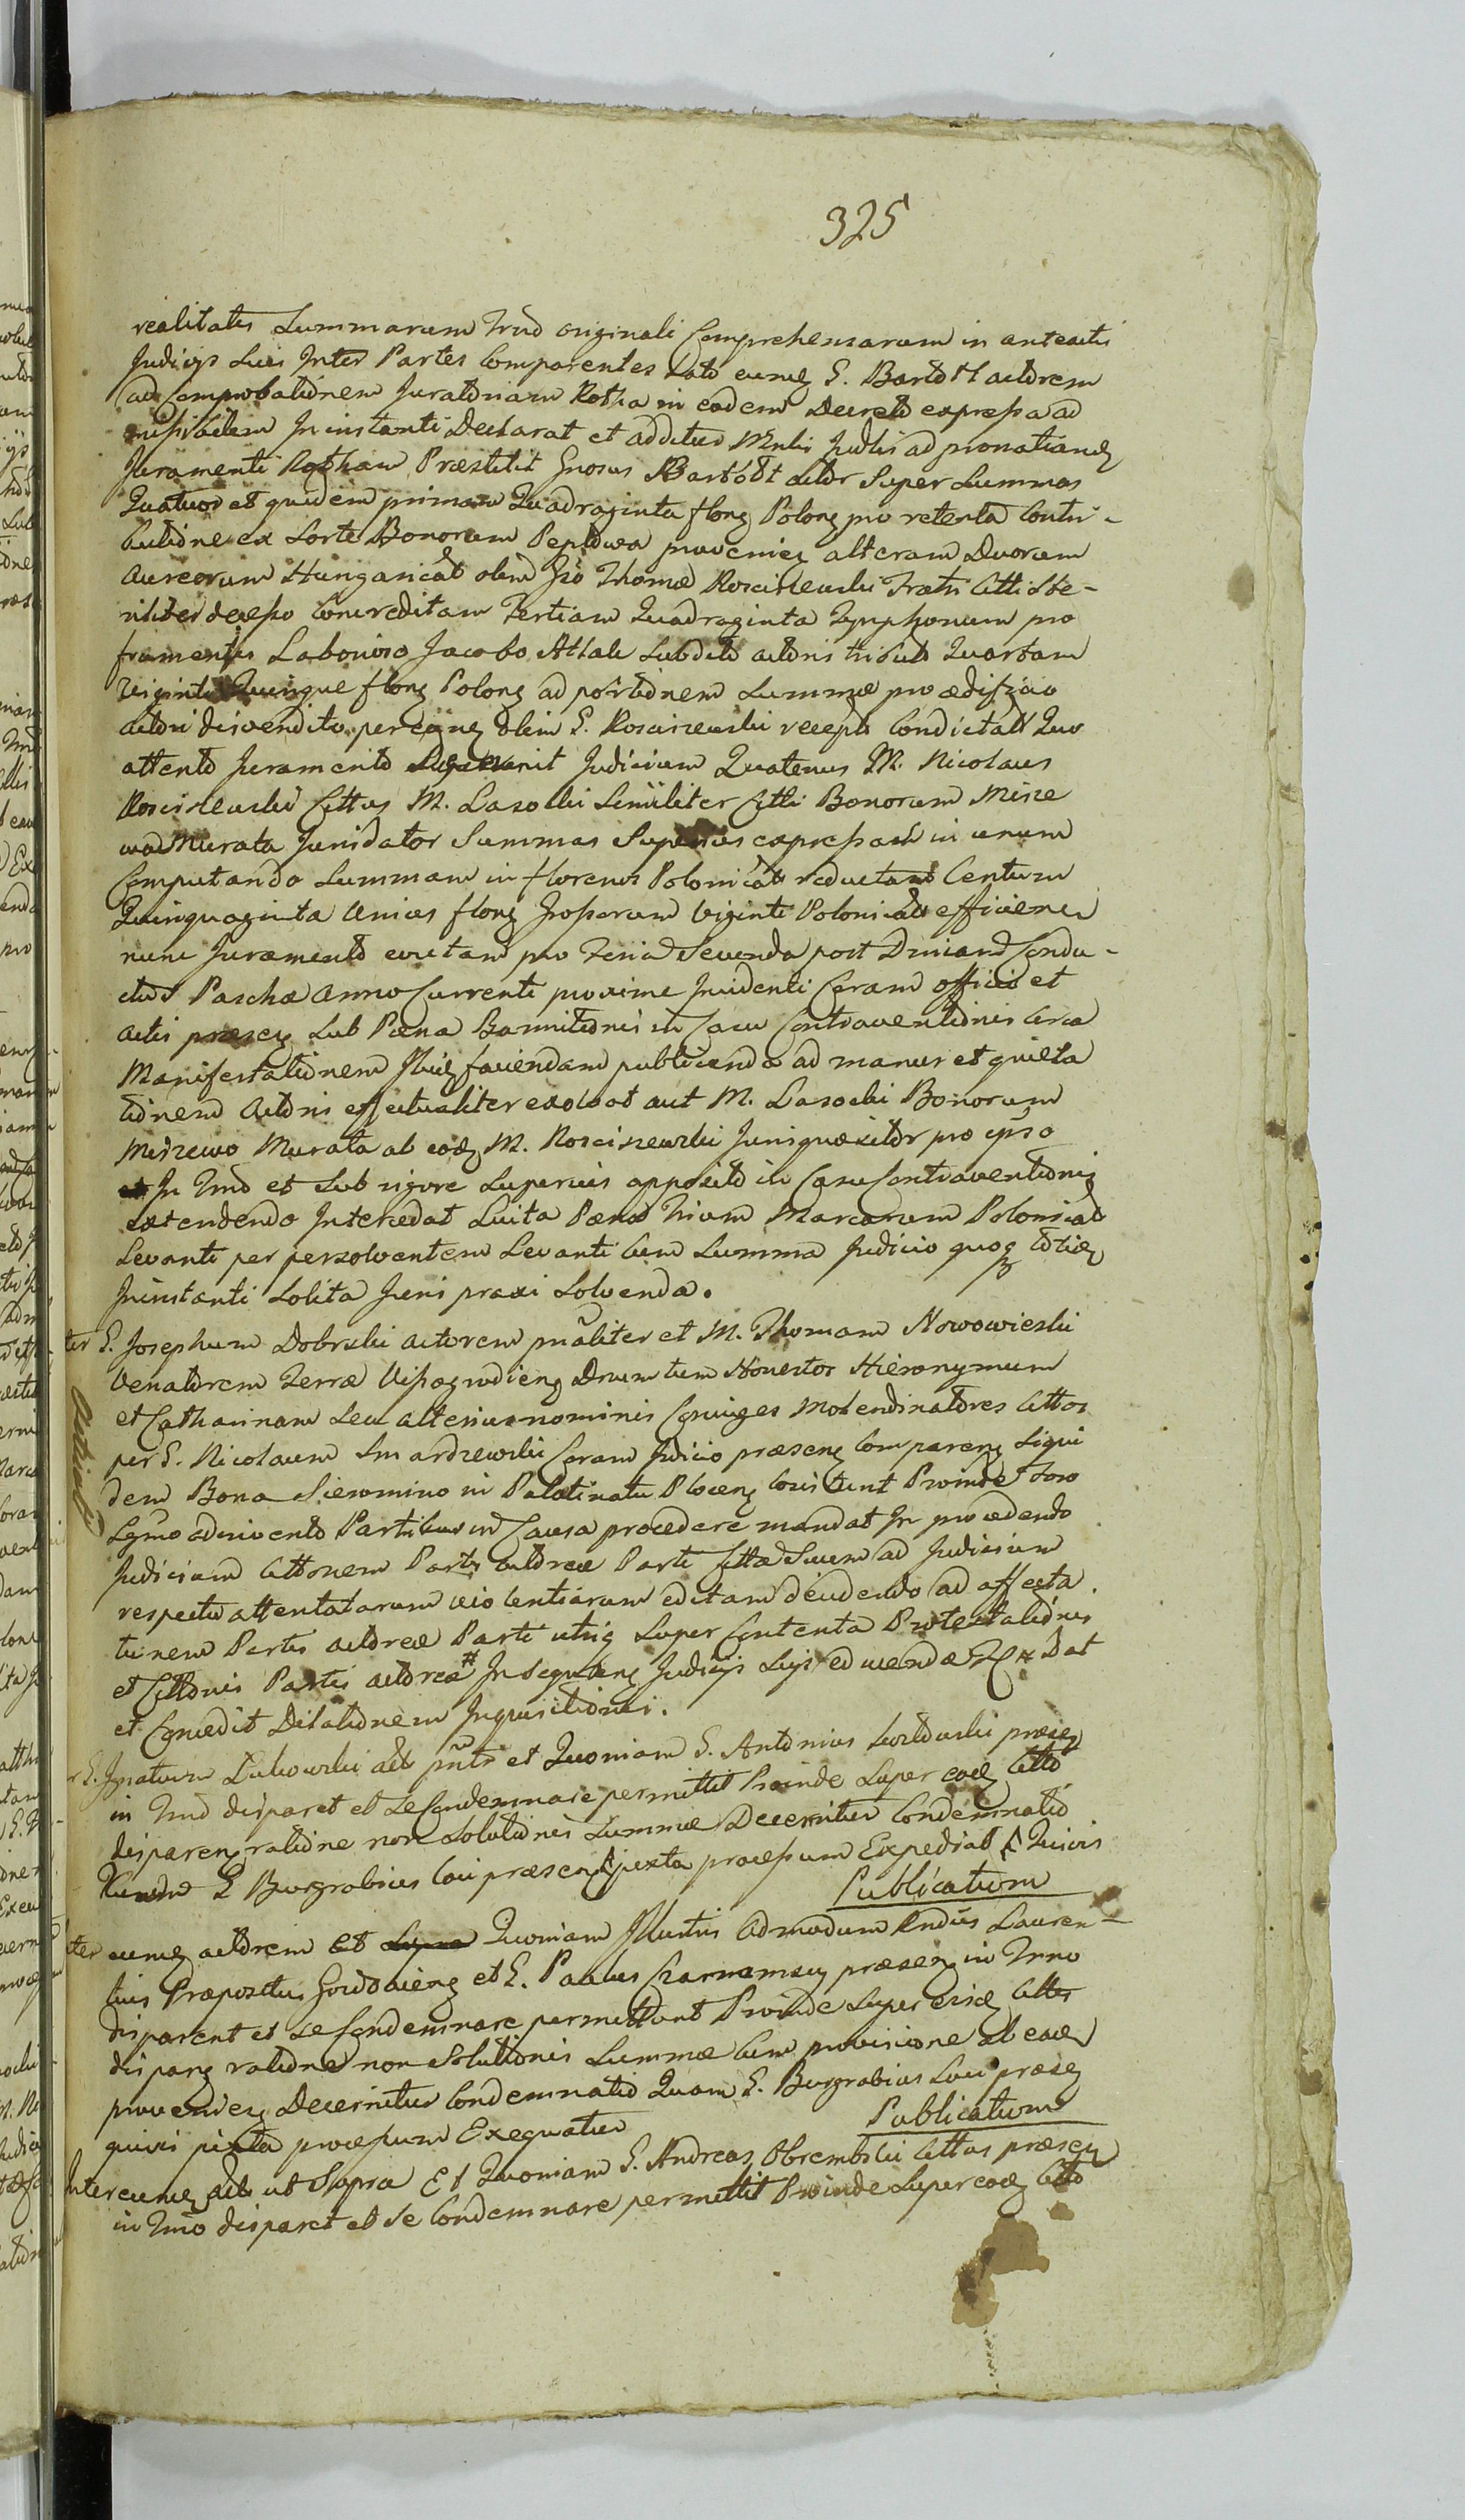 325
realitatis Summarum Trnd originali Comprehensarum in anteactis
Judicijs Suis Inter Partes Comparentes lato eumq G. Bartolt actorem
ad Comprobationem Juratoriam Rotha in eodem Decreto expressa ad
Ininstanti Declarat et additus Mnlis Judlis ad
Juramenti Rotham Præstitit Gnosus Bartolt actor Super Summas
Quatuor et quidem primam Quadraginta flong Polong pro retenta Contri-
butione ex Sorte Bonorum Peplowo provenien alteram Duorum
Aureorum Hungaricat olim Thomæ Rosciszewski Fratri Citti
Concreditam Tertiam Quadraginta Tymphonum pro
frumentis Laborioso Jacobo subdito actoris Quartam
Viginti Quinque flong Polong ad portionem Summæ pro ædificio
actori disvendito per eunq olim G. Rosciszewski recepto Condictat Quo
attento Juramento Judicium Quatenus M. Nicolaus
Rosciszewski Cittus M. Lasocki Similiter Citti Bonorum Misze
wo Murata Juridator Summas Superius expressas in unum
Computando Summam in florenos Polonicat reductam Centum
Quinquaginta Unius flong Grossorum Viginti Polonicat efficien
nunc Juramento evictam pro Feria Secunda post Dnicam Condu-
ctus Paschæ Anno Currenti proxime Incidenti Coram officio et
actis præsen Sub Pæna Bannitionis in Casu Contraventionis circa
Manifestationem faciendam publicanda ad manus et quieta
tionem Actoris effectualiter exolvat aut M. Lasocki Bonorum
Miszewo Murata ab eodq M. Rosciszewski Jurisquæsitor pro ipso
In Trnd et Sub rigore Superius apposito in Casu Contraventionis
extendendo Intercedat Luita Pæna Trium Marcarum Polonicat
Levanti per persolventem Levanti Cum Summa Judicio quoq
Ininstanti Solita Juris praxi Solvenda.
ter G. Josephum Dobrski actorem pnaliter et M. Thomam Nowowieski
Venatorem Terræ Vissegrodieng Drum tum Honestos Hieronymum
et Catharinam Seu alterius nominis Conjuges Molendinatores Cittos
per G. Nicolaum Smardzewski Coram Judicio præseng Compareng Siqui
dem Bona Sieromino in Palatinatu Ploceng Consistunt Proinde Foro
Lgmo advivento Partibus in Causa procedere mandat In procedendo
Judicium Cittonem Partis actoreæ Parti Cittæ Suum ad Judicium
respectu attentatarum violentiarum editam dendendo ad affecta
tionem Partis actoreæ Parti utriq Super Contenta Protestationis
et Cittonis Partis actoreæ # In Sequten Judicijs Suis educendæ # Dat
et Concedit Dilationem Inquisitionis.
r G. Ignatium act pnte et Quoniam G. Antonius præsen
in Trnd disparet et se Condemnare permittit Proinde Super eodq Citto
dispareng ratione non Solutionis Summæ Decernitur Condemnatio
G Burgrabius loci præsen juxta processum Expediat Quivis
Publicatum
ter eumq actorem et Quoniam Illustris Admodum Rndus Lauren-
tius Præpositus et G. Paulus præseng in Trno
disparent et se Condemnare permittunt Proinde Super eisq Cittis
disparng ratione non Solutionis Summæ Cum provisione ab eadq
provenien Decernitur Condemnatio Quam G. Burgrabius Loci præsen
quivis juxta processum Exequatur
Publicatum
Inter eumq act ut Supra Et Quoniam G. Andreas Obrembski Cittus præsen
in Trno disparet et se Condemnare permittit Proinde Super eodq Citto